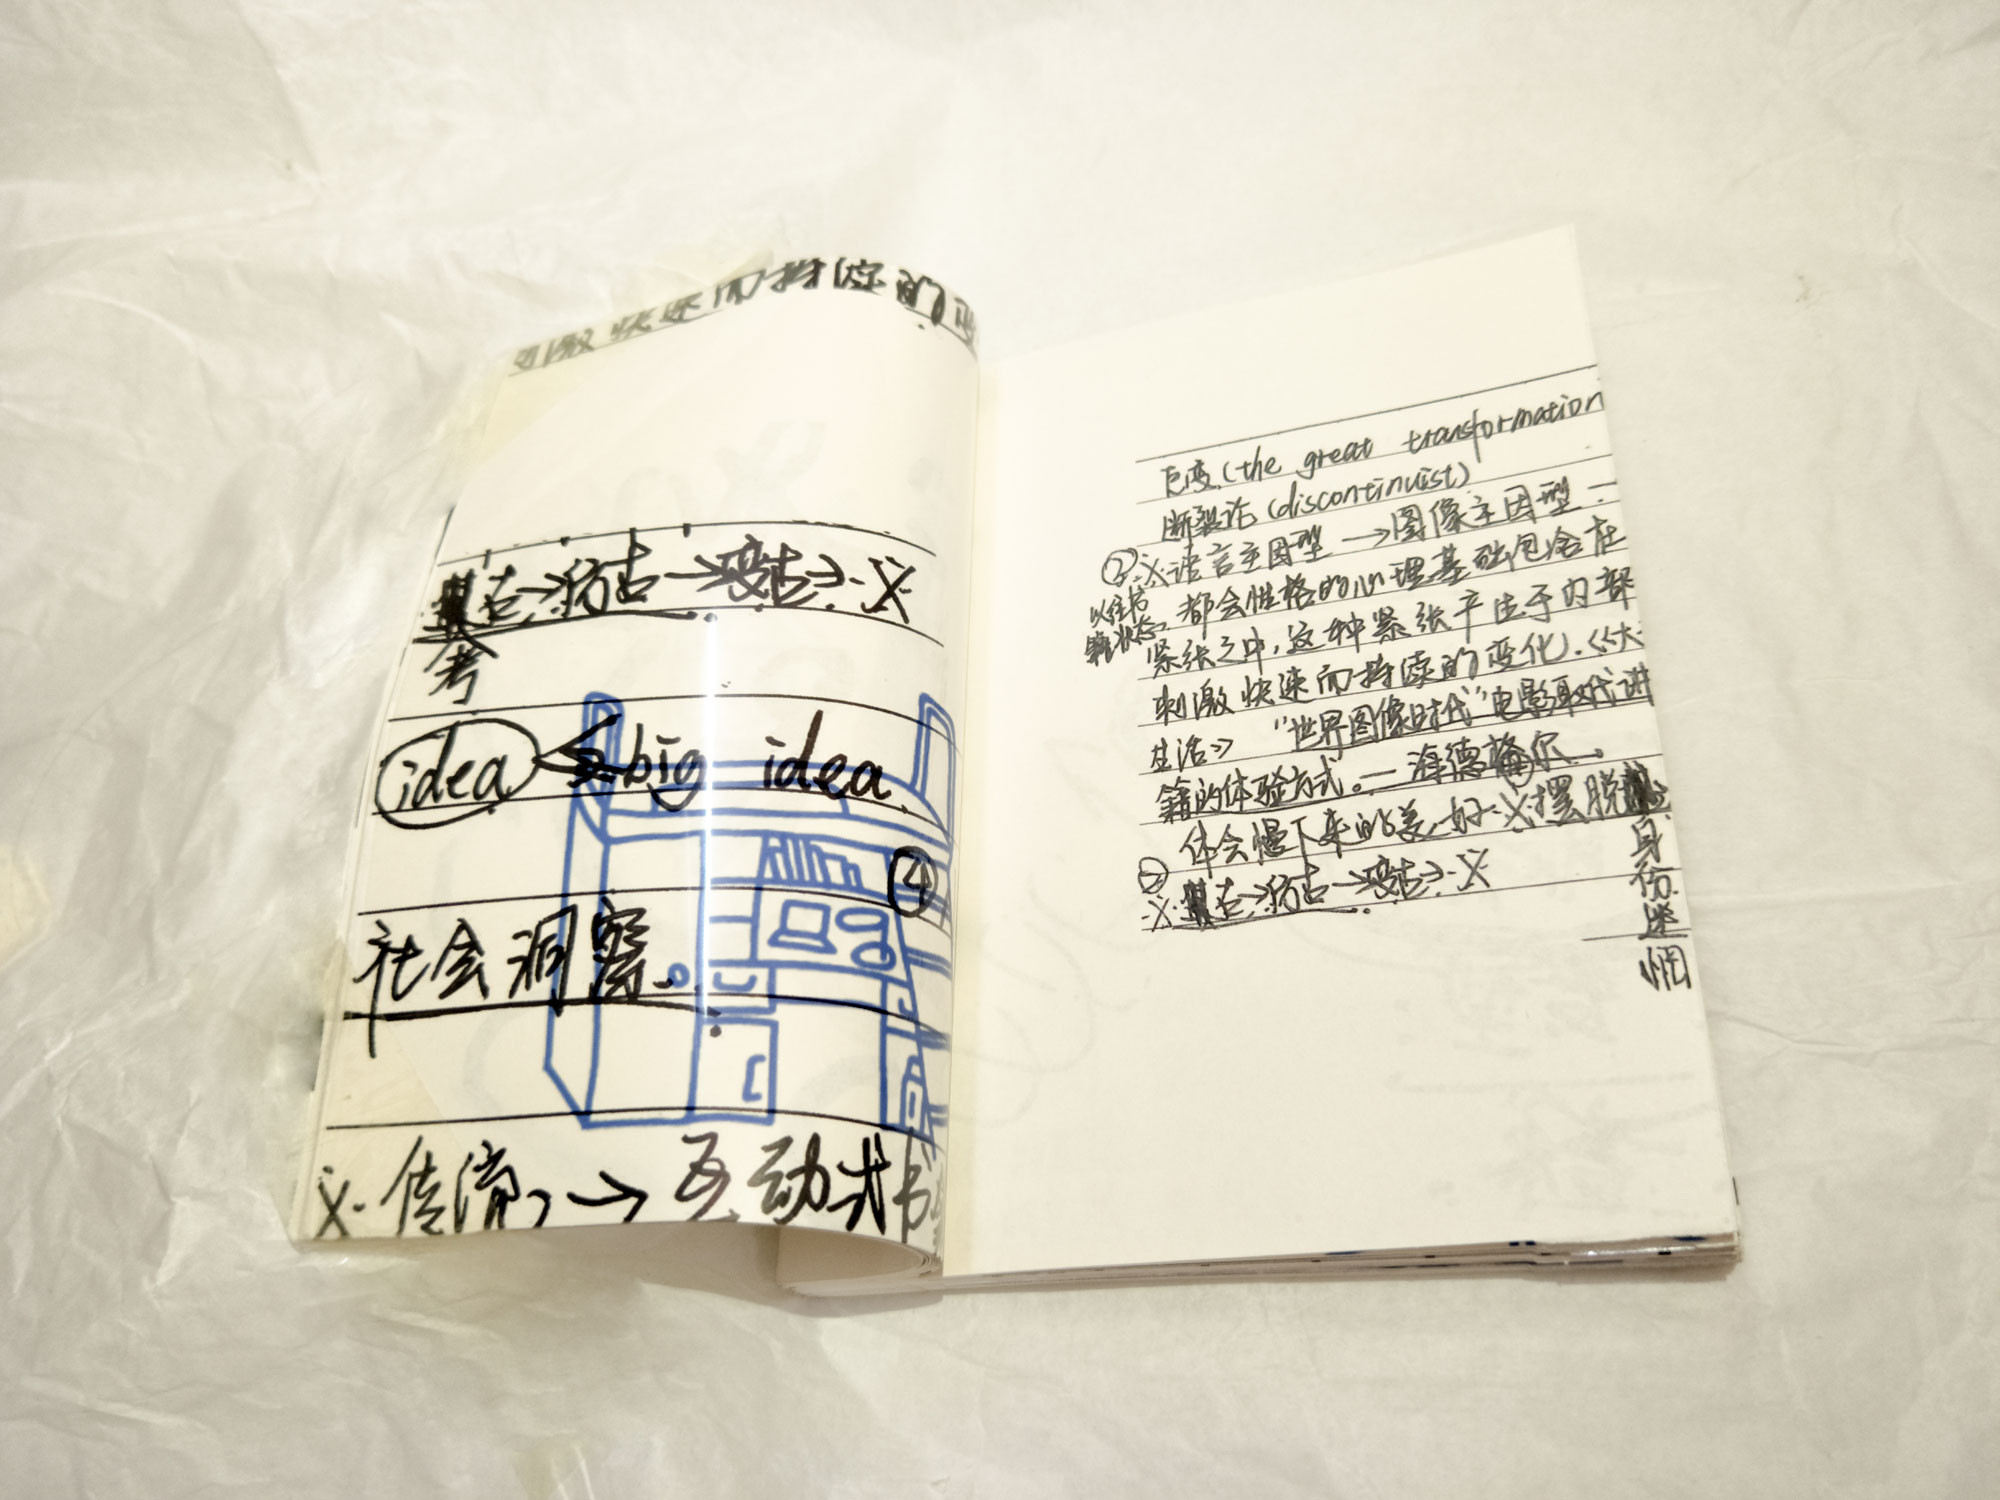 刺激快速而持续的变
古→仿古→变古→※
考
idea ← big idea.
④
社会洞察。
※传流,→互动式书
巨变(the great transformation
断裂论(discontinuist)
②※语言主因型→图像主因型一
以往书
籍状态,
都会性格的心理基础包含在
紧张之中,这种紧张产生于内部
刺激快速而持续的变化.《大
生活》 “世界图像时代”电影取代进
籍的体验方式。— 海德格尔.
体会慢下来的美好※摆脱
身份迷惘
※古→仿古→变古→※